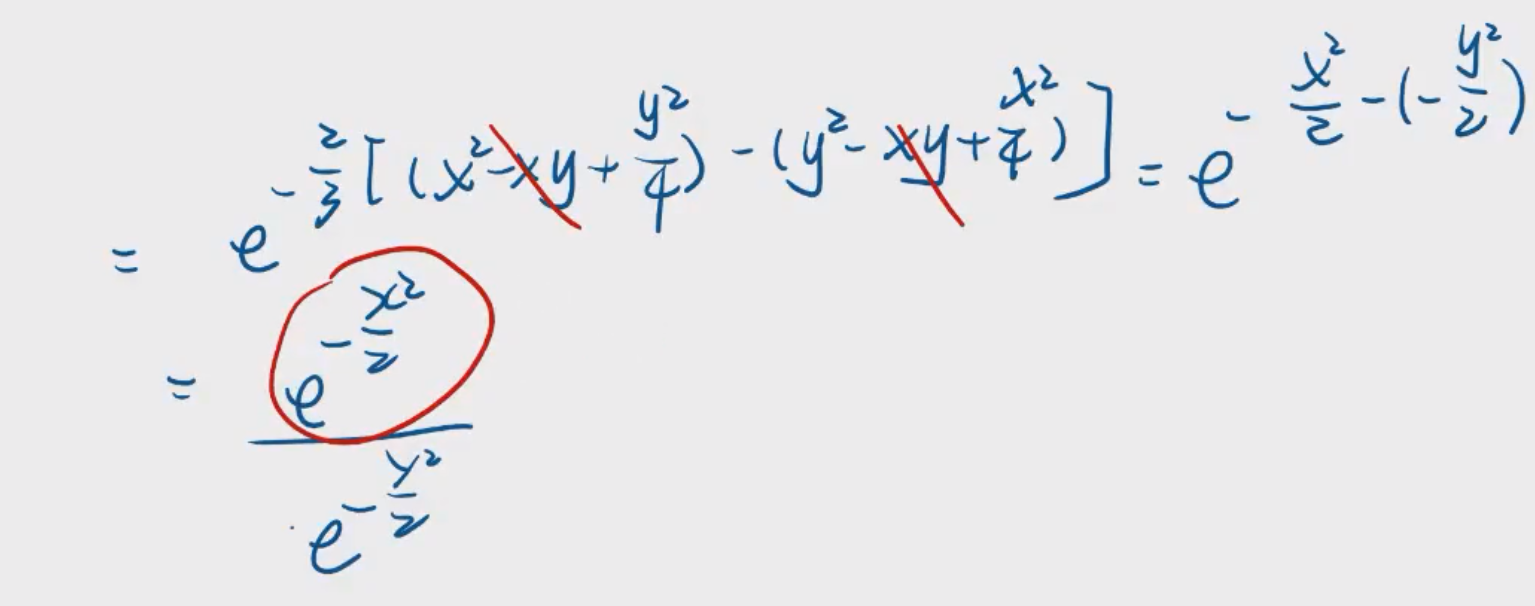 = e^{-\frac{2}{3}[(x^2-xy+\frac{y^2}{4})-(y^2-xy+\frac{x^2}{4})]} = e^{-\frac{x^2}{2}-(-\frac{y^2}{2})}
= \frac{e^{-\frac{x^2}{2}}}{e^{-\frac{y^2}{2}}}